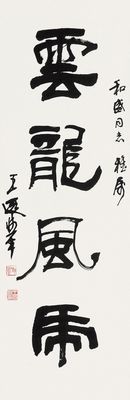 雲龍風虎
和盛同志雅屬
王遐舉